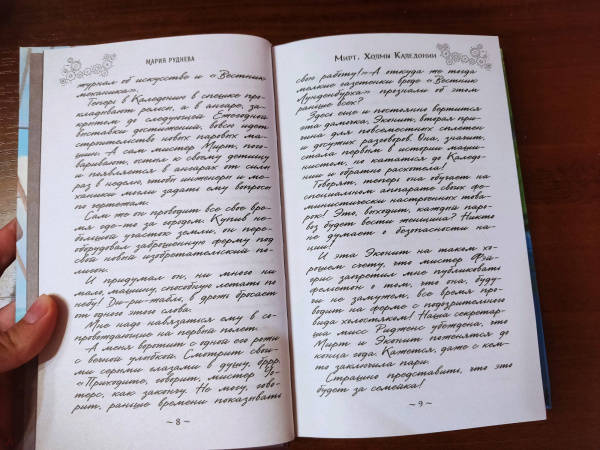 Мария Руднева
журнал об искусстве и «Вестник
механика».
Теперь в Каледонии в спешке про-
кладывают рельсы, а в ангаре, за-
крытом до следующей Ежегодной
выставки достижений, вовсю идет
строительство новых паровых ма-
шин. А сам мистер Мирт, пого-
варивают, остыл к своему детищу
и появляется в ангарах от силы
раз в неделю, чтобы инженеры и ме-
ханики могли задать ему вопросы
по чертежам.
Сам же он проводит все свое вре-
мя где-то за городом. Купив не-
большой участок земли, он пере-
оборудовал заброшенную ферму под
свой новый изобретательский по-
лигон.
И придумал он, ни много ни
мало, машину, способную летать по
небу! Ди-ри-жабль, в дрожь бросает
от одного этого слова.
Мне надо навязаться ему в со-
провождающие на первый полет.
А меня воротит с одной его рожи
с вечной улыбкой. Смотрит свои-
ми черными глазами в душу, бррр.
«Приходите, говорит, мистер Уо-
терс, как закончу. Не могу, гово-
рит, раньше времени показывать
~ 8 ~
Мирт. Холмы Каледонии
свою работу!» А откуда же тогда
мелкие газетенки вроде «Вестника
Лунденбурха» прознали об этом
раньше всех?
Здесь еще и постоянно вертится
эта дамочка, Эконит, вторая при-
чина для повсеместных сплетен
и досужих разговоров. Она, значит,
стала первым в истории маши-
нистом, но кататься до Каледо-
нии и обратно расхотела!
Говорят, теперь она обучает на
специальном аппарате своих фе-
министически настроенных това-
рок! Это, выходит, каждый паро-
воз будет вести женщина? Никто
не думает о безопасности на-
ции!
И эта Эконит на таком хо-
рошем счету, что мистер Фэй-
рис запретил мне публиковать
фельетон о том, что она, буду-
чи не замужем, все время про-
водит на ферме с подозрительного
вида холостяком! Наша секретар-
ша мисс Риджент убеждена, что
Мирт и Эконит поженятся до
конца года. Кажется, даже с кем-
то заключила пари.
Страшно представить, что это
будет за семейка!
~ 9 ~